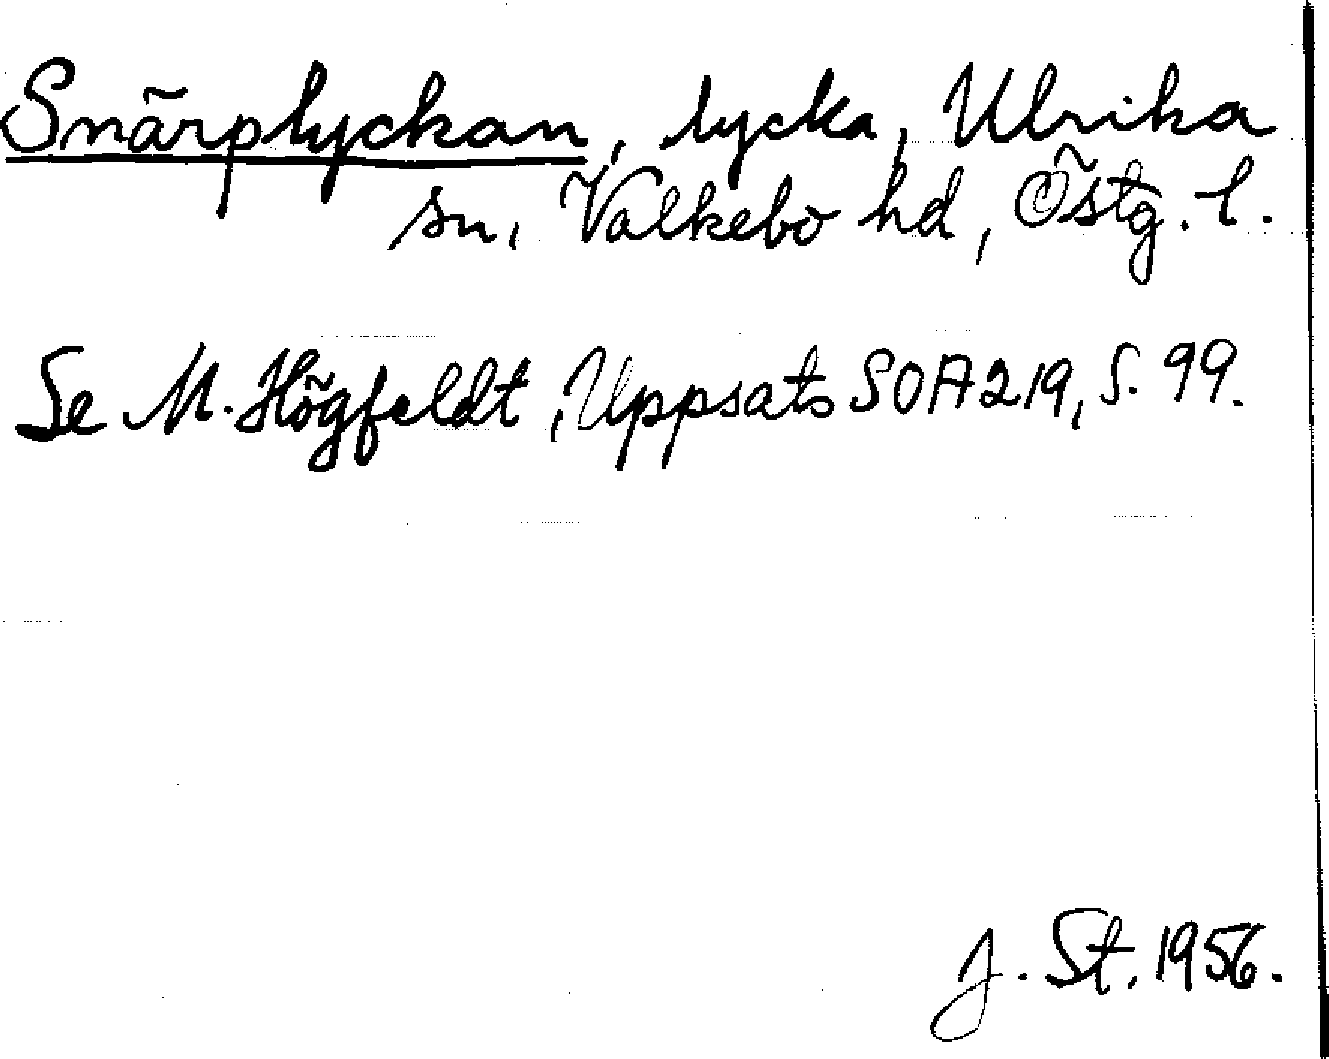 Snärplyckan, lycka, Ulrika
sn, Valkebo hd, Östg. l.
Se M. Högfeldt, Uppsats SOA219, S. 99.
J. St. 1956.